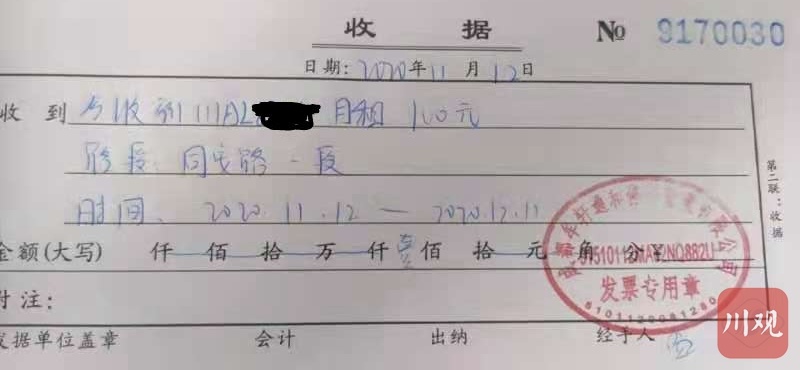 收 据 № 9170030
日期: 2020年11月12日
收 到 今收到川A 月租100元
路段: 同安路一段
时间: 2020.11.12 — 2020.12.11
金额(大写) 仟 佰 拾 万 仟 壹 佰 拾 元 角 分 ¥
附注:
发据单位盖章 会计 出纳 经手人
第二联:收据
有限公司
发票专用章
川观